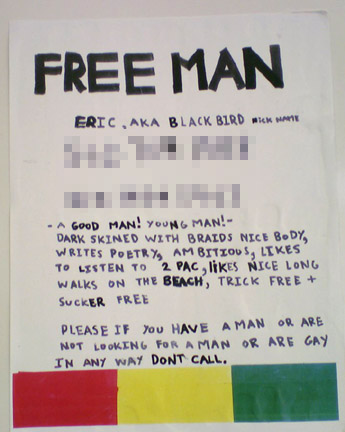 FREE MAN
ERIC, AKA BLACK BIRD NICK NAME
- A GOOD MAN! YOUNG MAN! -
DARK SKINED WITH BRAIDS NICE BODY,
WRITES POETRY, AMBITIOUS, LIKES
TO LISTEN TO 2 PAC, LIKES NICE LONG
WALKS ON THE BEACH, TRICK FREE +
SUCKER FREE
PLEASE IF YOU HAVE A MAN OR ARE
NOT LOOKING FOR A MAN OR ARE GAY
IN ANY WAY DONT CALL.